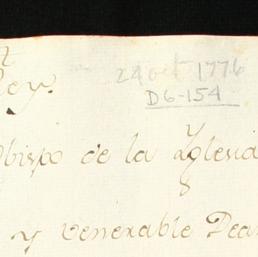 24 oct 1776
Rey.
D6-154
Obispo de la Yglesia
y venerable Dean